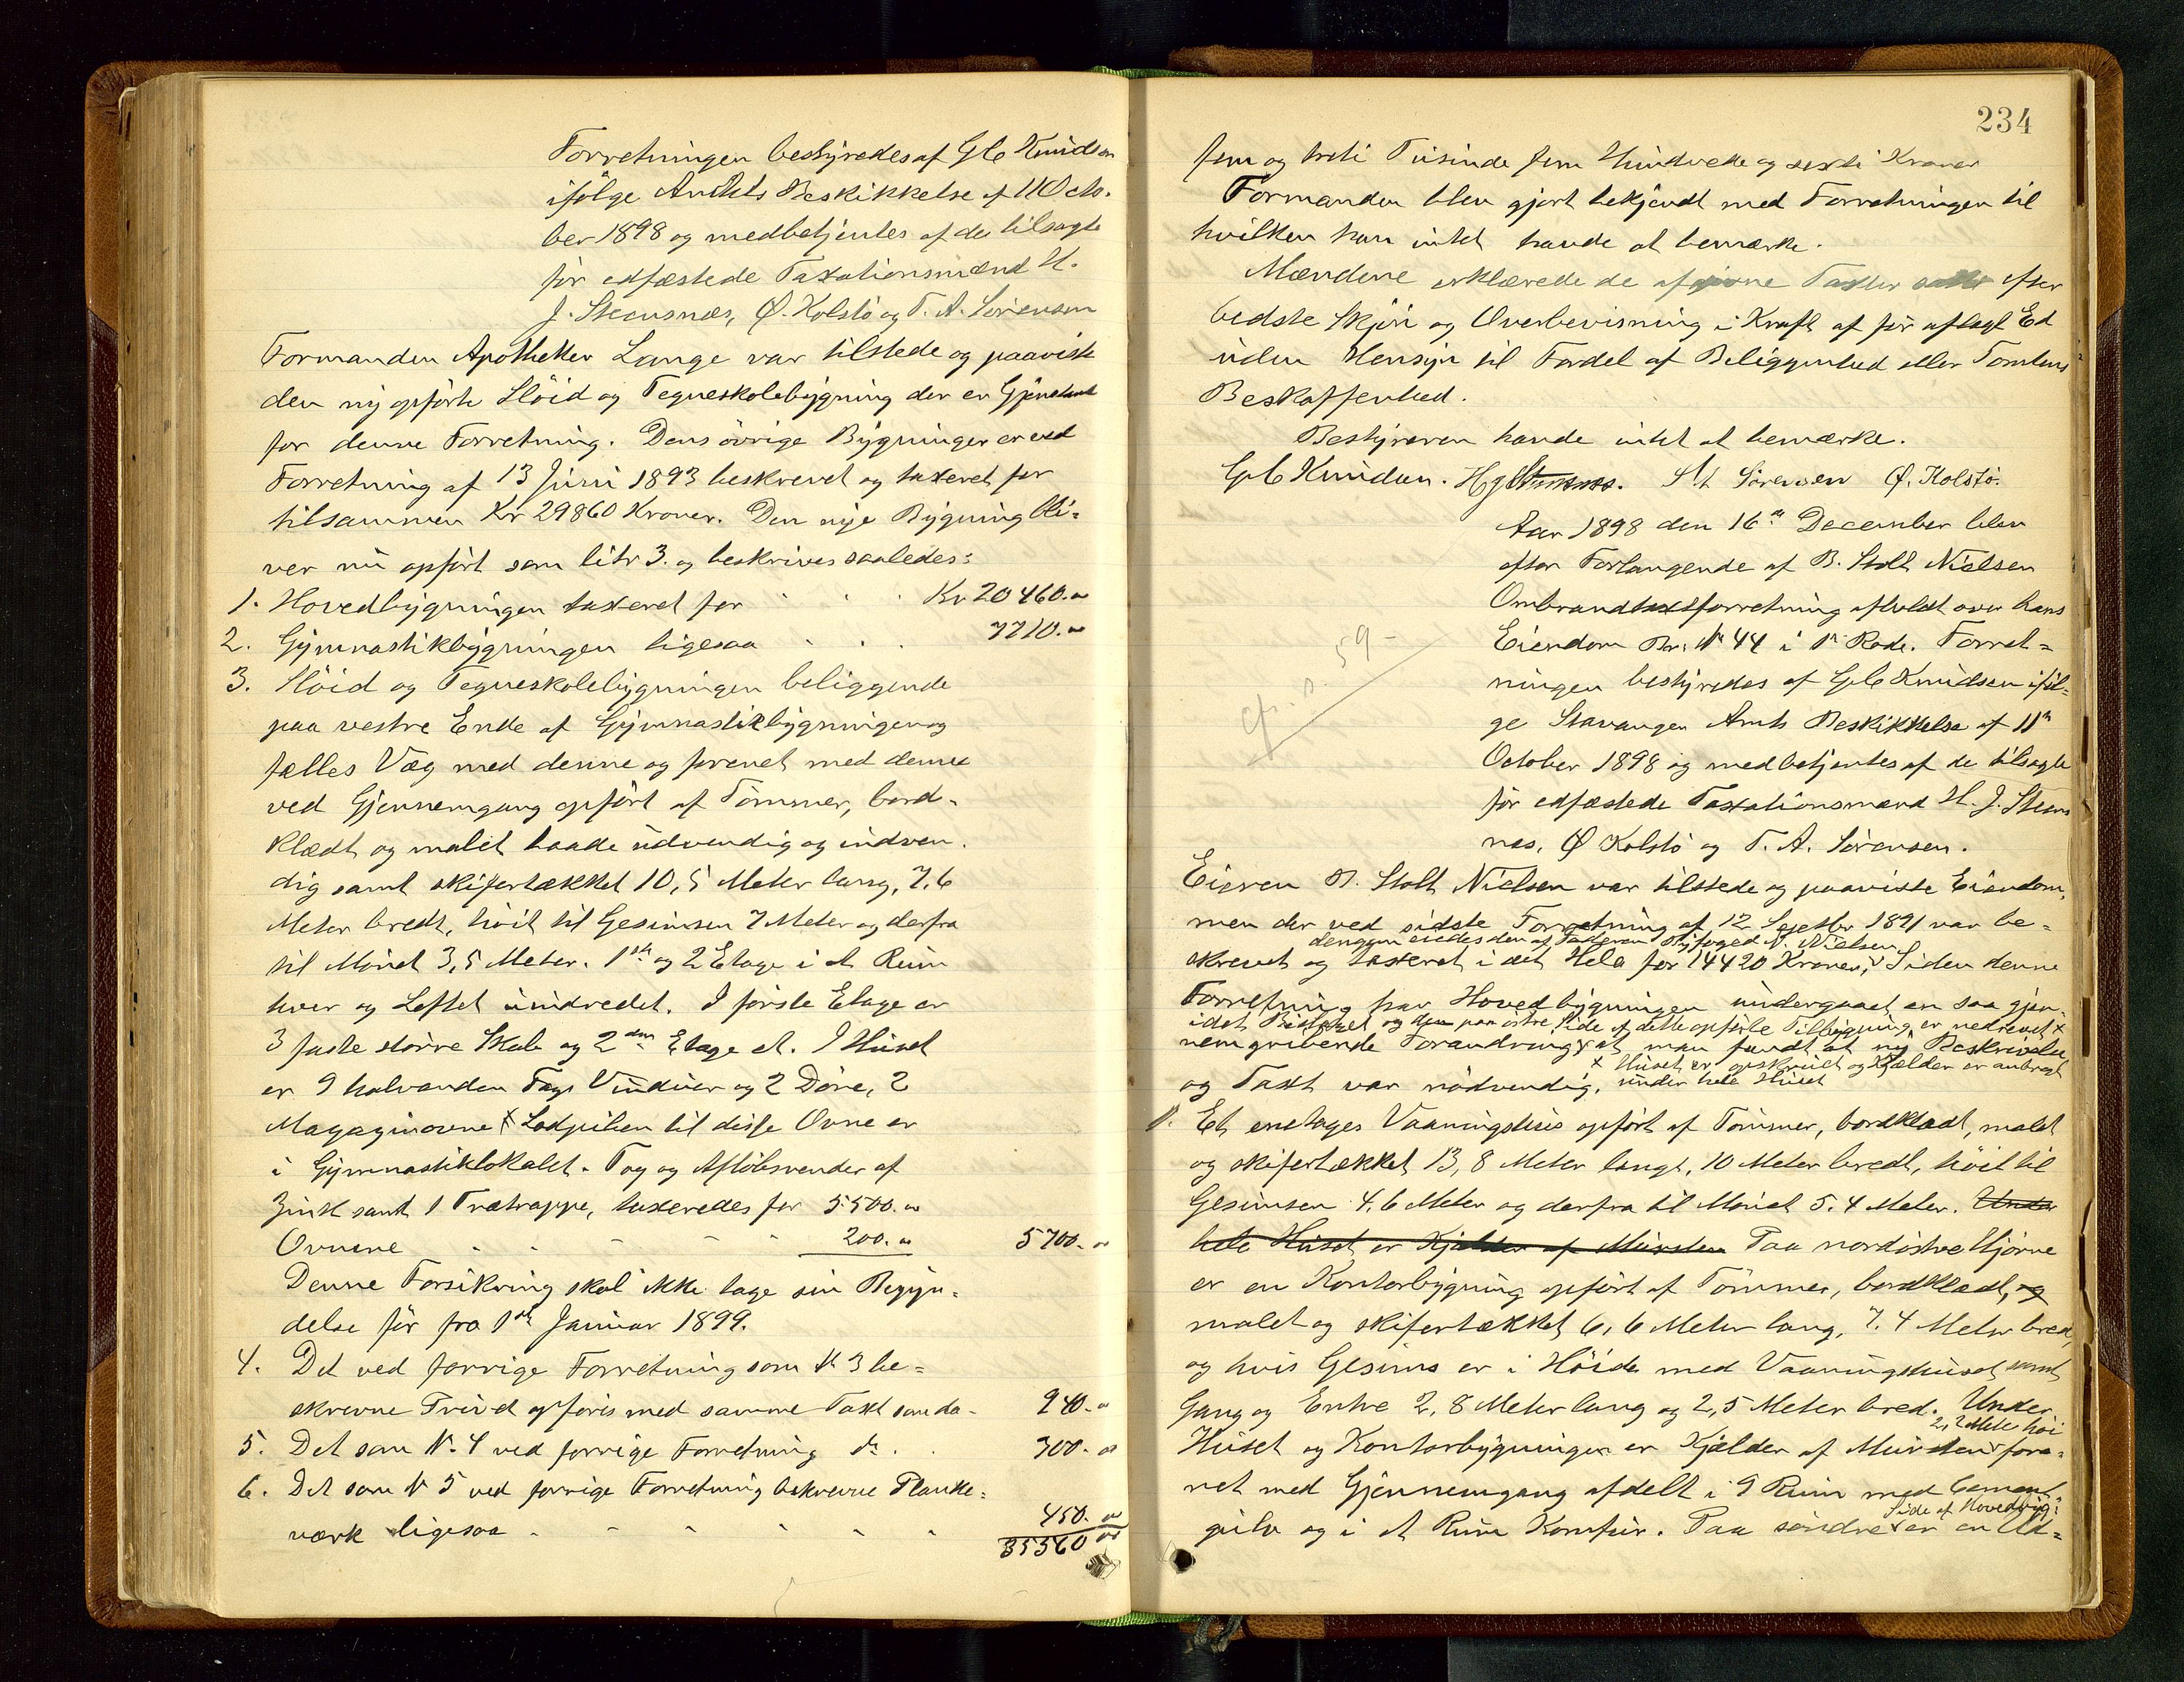 Forretningen bestyredes af G C Knudsen
ifølge Amtets Beskikkelse af 11 Octo-
ber 1898 og medbetjentes af de tilsagte
før edfæstede Taxationsmænd H.
J. Steensnæs, Ø. Kolstø og T. A. Sørensen
Formanden Apotheker Lange var tilstede og paaviste
den ny opførte Sløid og Tegneskolebygning der er Gjenstand
for denne Forretning. Dens øvrige Bygninger er ved
Forretning af 13 Juni 1893 beskrevet og taxeret for
tilsammen Kr 29860 Kroner. Den nye Bygning bli-
ver nu opført som litr 3. og beskrives saaledes:
1. Hovedbygningen taxeret for Kr 20460.
2. Gymnastikbygningen ligesaa 7710.
3. Sløid og Tegneskolebygningen beliggende
paa vestre Ende af Gymnastikbygningen og
fælles Væg med denne og forenet med denne
ved Gjennemgang opført af Tømmer, bord-
klædt og malet baade udvendig og indven-
dig samt skifertækket 10,5 Meter lang, 7,6
Meter bredt, høit til Gesimsen 7 Meter og derfra
til Mønet 3,5 Meter. 1ste og 2 Etage i et Rum
hver og Loftet uindredet. I første Etage er
3 faste større Skab og 2den Etage et. I Huset
er 9 halvanden Fags Vinduer og 2 Døre, 2
Magaginovne x Lodpiben til disse Ovne er
i Gymnastiklokalet. Tag og Afløbsrender af
Zink samt 1 Trætrappe, taxeredes for 5500.
Ovnene 200. 5700.
Denne Forsikring skal ikke tage sin Begyn-
delse før fra 1ste Januar 1899.
4. Det ved forrige Forretning som N 3 be-
skrevne Privet opføres med samme Taxt som da 940.
5. Det som N. 4 ved forrige Forretning do. 300.
6. Det som N 5 ved forrige Forretning beskrevne Planke-
værk ligesaa 450.
35560
234
fem og treti Tusinde fem Hundrede og sexti Kroner
Formanden blev gjort bekjendt med Forretningen til
hvilken han intet havde at bemærke.
Mændene erklærede de afgivne Taxter satte efter
bedste Skjøn og Overbevisning i Kraft af før aflagt Ed
uden Hensyn til Fordel af Beliggenhed eller Tomtens
Beskaffenhed.
Bestyreren havde intet at bemærke.
G C Knudsen. H J Steensnæs. T A Sørensen Ø. Kolstø.
Aar 1898 den 16de December blev
efter Forlangende af B. Stolt Nielsen
Ombrandtaxtforretning afholdt over hans
Eiendom Br. N 44 i 1ste Rode. Forret-
ningen bestyredes af G C Knudsen iføl-
ge Stavanger Amts Beskikkelse af 11te
October 1898 og medbetjentes af de tilsagte
før edfæstede Taxationsmænd H. J. Steens
næs, Ø Kolstø og T. A. Sørensen.
Eieren B. Stolt Nielsen var tilstede og paaviste Eiendom-
men der ved sidste Forretning af 12 Septbr 1891 var be-
dengang eiedes den af Faderen Byfoged N. Nielsen
skrevet og taxeret i det Hele for 14420 Kroner, Siden denne
Forretning har Hovedbygningen undergaaet en saa gjen-
idet og den paa østre Side af dette opførte Tilbygning er nedrevet x
nemgribende Forandring at man fandt at ny Beskrivelse
x Huset er opskruet og Kjælder er anbragt
og Taxt var nødvendig. under hele Huset
1. Et enetages Vaaningshus opført af Tømmer, bordklædt, malet
og skifertækket 13,8 Meter langt, 10 Meter bredt, høit til
Gesimsen 4,6 Meter og derfra til Mønet 5.4 Meter. Under
hele Huset er Kjælder af Mursten Paa nordøstre Hjørne
er en Kontorbygning opført af Tømmer, bordklædt, og
malet og skifertækket 6,6 Meter lang, 7.4 Meter bred,
og hvis Gesims er i Høide med Vaaningshuset samt
Gang og Entre 2,8 Meter lang og 2,5 Meter bred. Under
2,2 Meter høi
Huset og Kontorbygningen er Kjælder af Mursten fore-
net med Gjennemgang afdelt i 9 Rum med Cement-
Side af Hovedbyg:
gulv og i et Rum Komfur. Paa søndre x er en Ud-
cfr. p. 59-